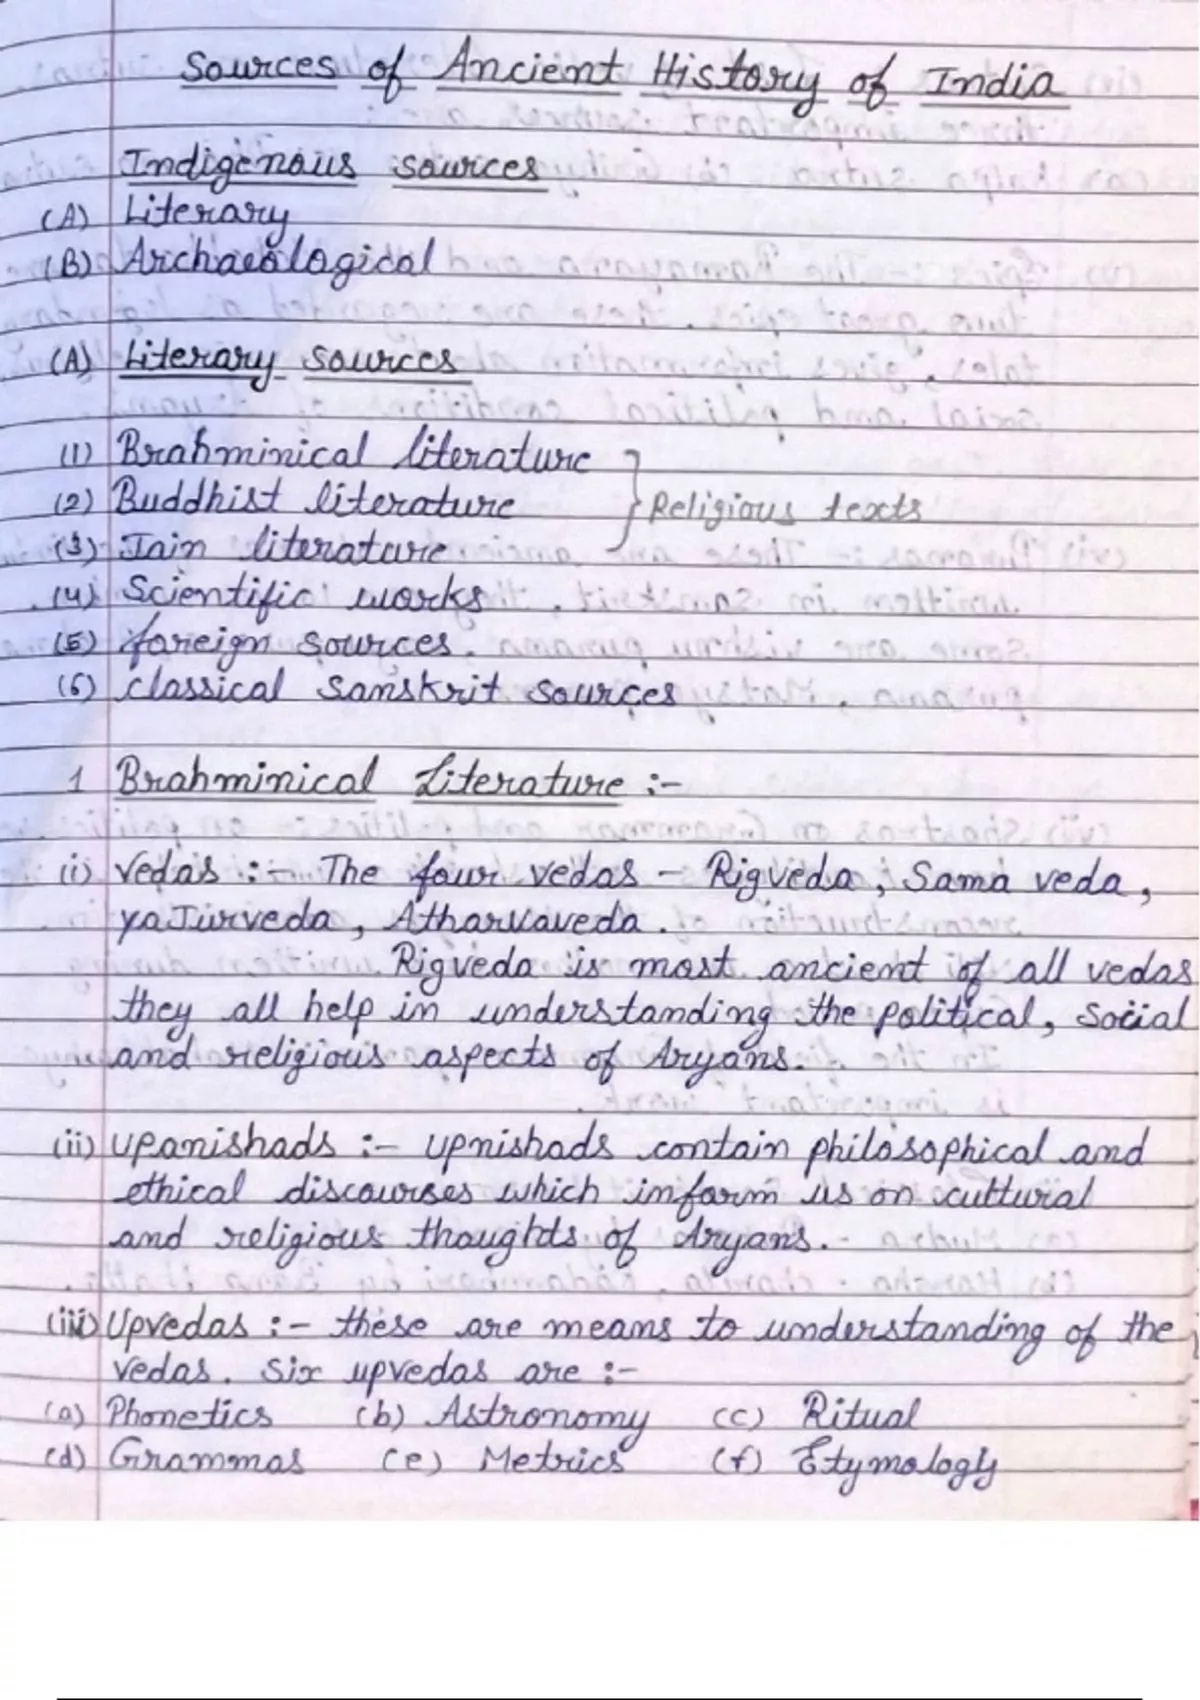 Sources of Ancient History of India
Indigenous sources
(A) Literary
(B) Archaeological
(A) Literary sources
(1) Brahminical literature
(2) Buddhist literature } Religious texts
(3) Jain literature
(4) Scientific works
(5) foreign sources.
(6) classical Sanskrit sources
1 Brahminical Literature :-
(i) Vedas :- The four vedas - Rigveda, Sama veda,
yaJurveda, Atharvaveda.
Rigveda is most ancient of all vedas
they all help in understanding the political, social
and religious aspects of Aryans.
(ii) upanishads :- upnishads contain philosophical and
ethical discourses which inform us on cultural
and religious thoughts of Aryans.
(iii) Upvedas :- these are means to understanding of the
vedas. Six upvedas are :-
(a) Phonetics (b) Astronomy (c) Ritual
(d) Grammas (e) Metrics (f) Etymology